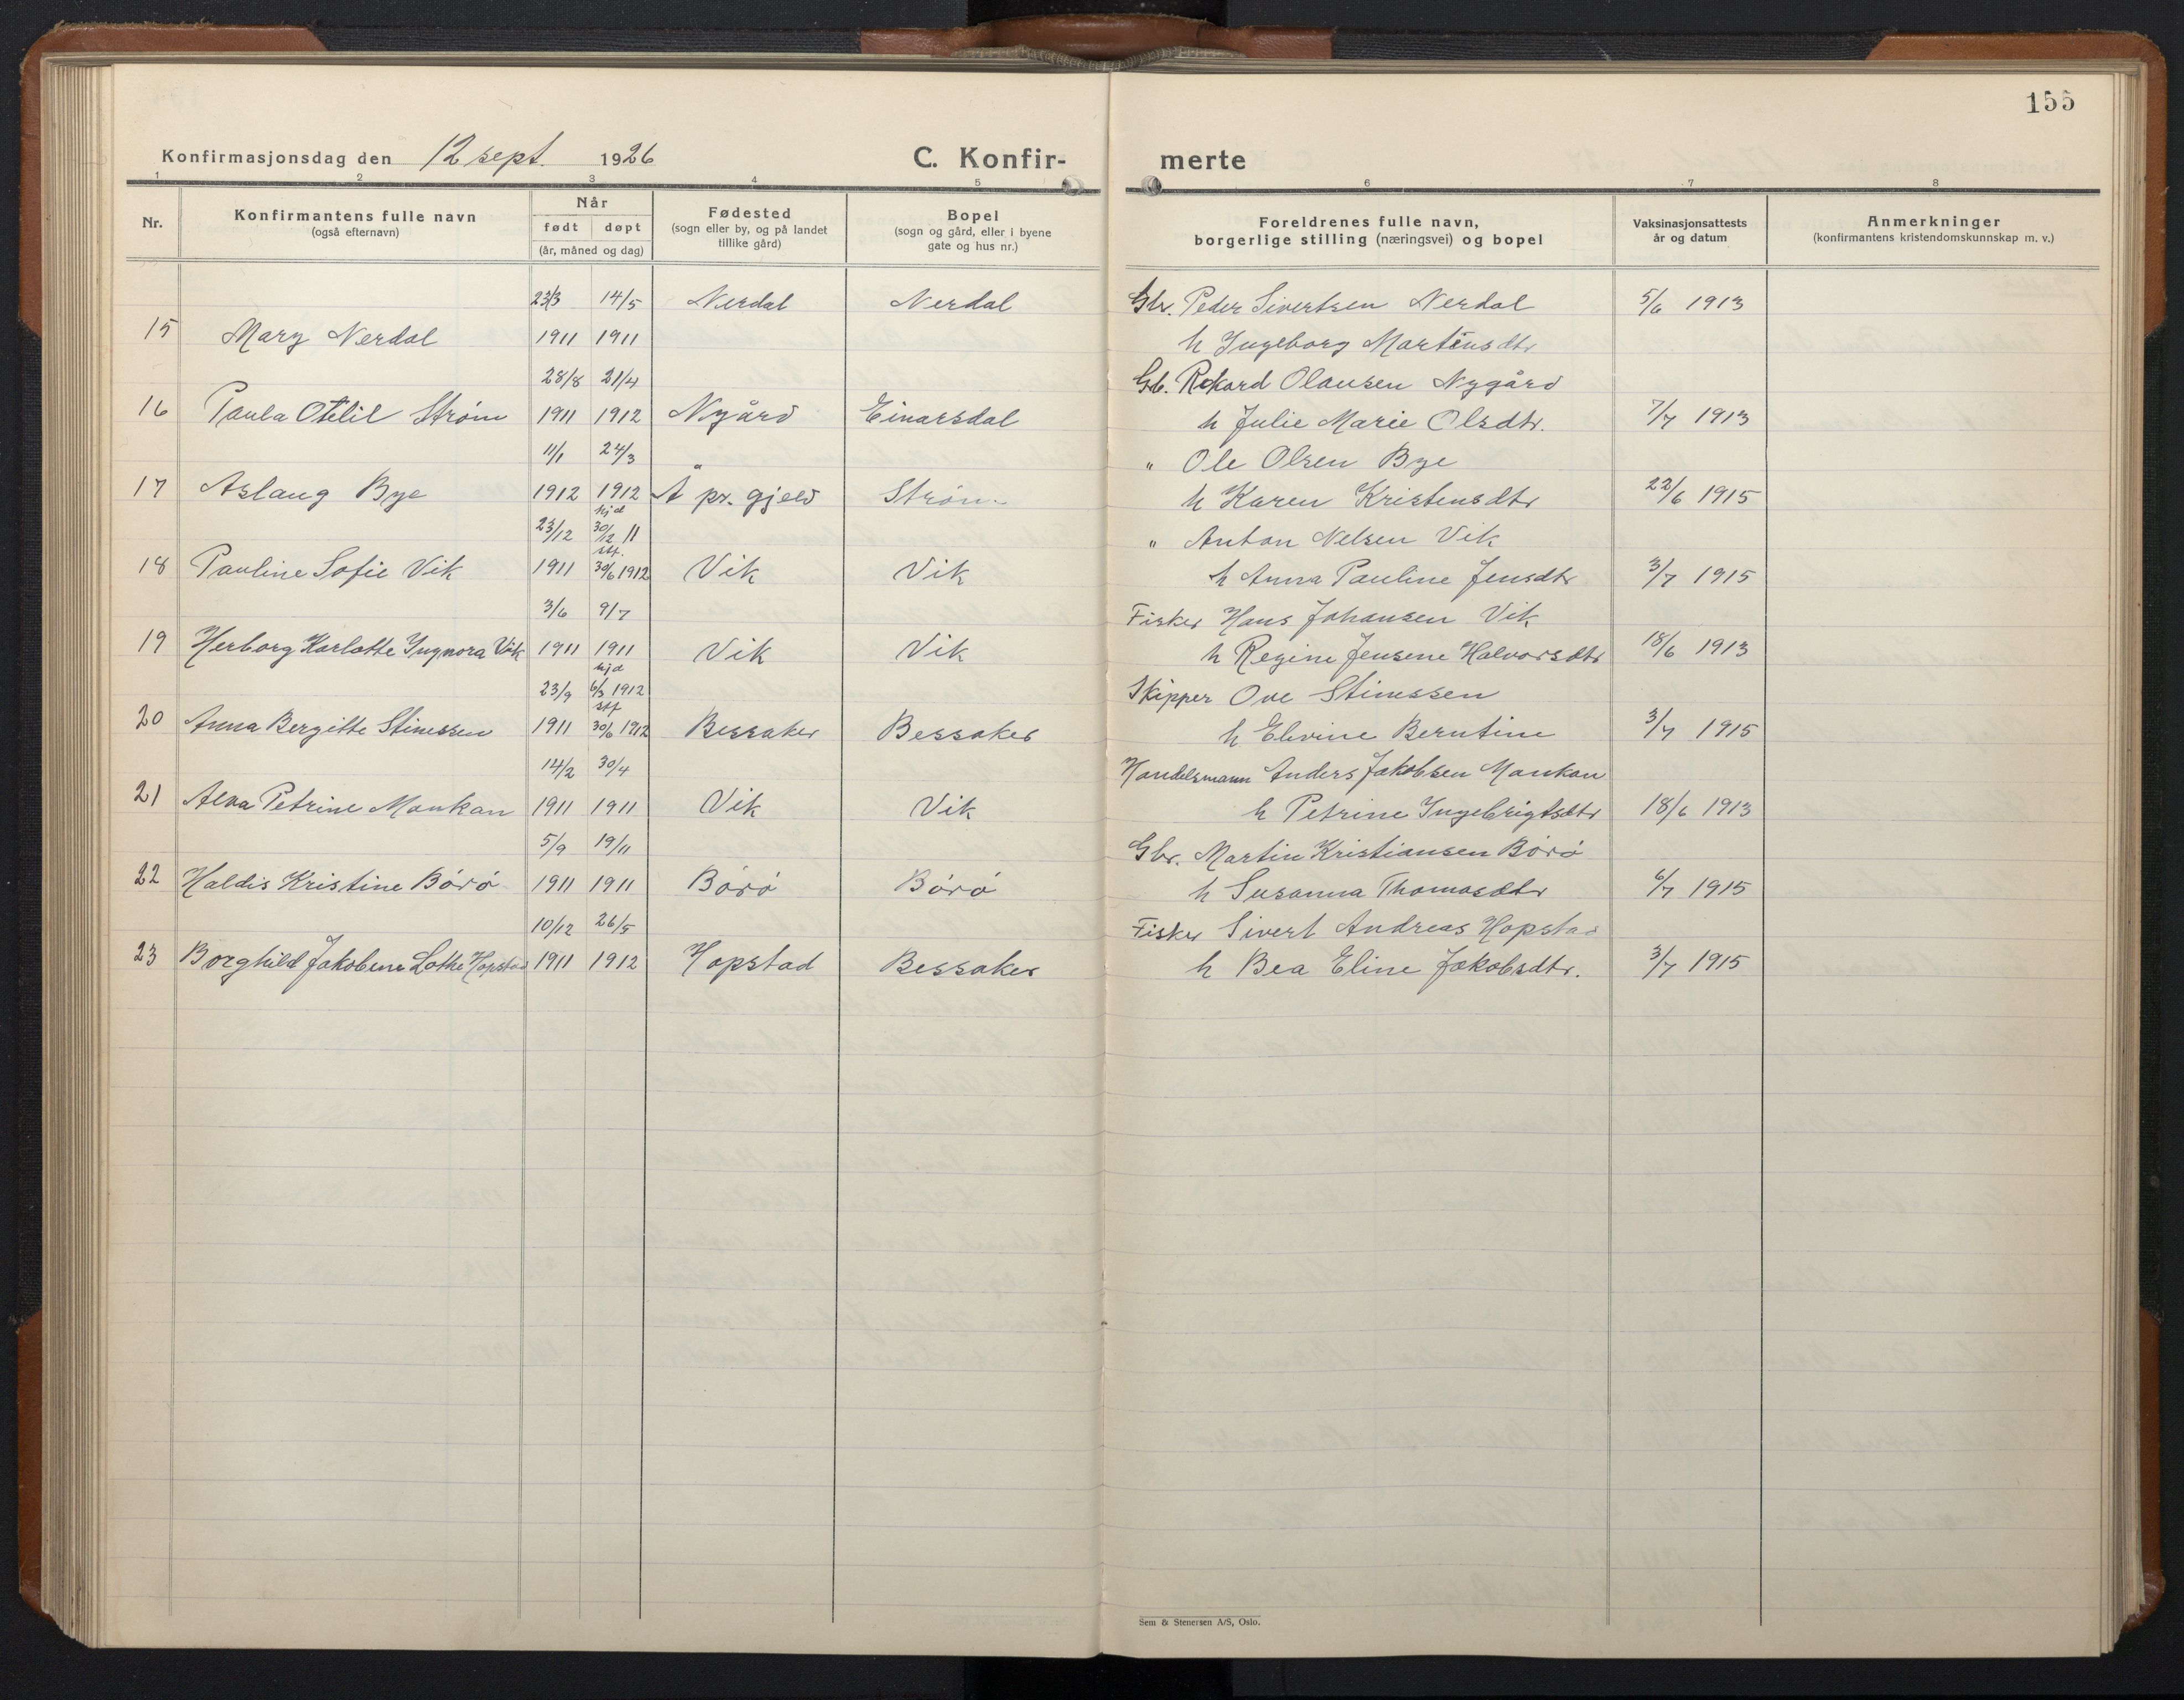 155
Konfirmasjonsdag den 12 sept. 1926 C. Konfir- merte
1 2 3 4 5 6 7 8
Nr. Konfirmantens fulle navn (også efternavn) Når født døpt (år, måned og dag) Fødested (sogn eller by, og på landet tillike gård) Bopel (sogn og gård, eller i byene gate og hus nr.) Foreldrenes fulle navn, borgerlige stilling (næringsvei) og bopel Vaksinasjonsattests år og datum Anmerkninger (konfirmantens kristendomskunnskap m. v.)
23/3 14/5 Nerdal Nerdal Gbr. Peder Sivertsen Nerdal 5/6 1913
15 Mary Nerdal 1911 1911 h Ingeborg Martinsdtr
28/8 21/4 Gb. Rikard Olausen Nygård
16 Paula Otelil Strøm 1911 1912 Nygård Einarsdal h Julie Marie Olsdtr. 7/7 1913
11/1 24/3 " Ole Olsen Bye
17 Aslaug Bye 1912 1912 Å pr. gjeld Strøm h Karen Kristensdtr 22/6 1915
23/12 hjd 30/12 11 " Anton Nelsen Vik
18 Pauline Sofie Vik 1911 stf. 30/6 1912 Vik Vik h Anna Pauline Jensdtr 3/7 1915
3/6 9/7 Fisker Hans Johansen Vik
19 Herborg Karlotte Ingnora Vik 1911 1911 Vik Vik h Regine Jensene Halvorsdtr 18/6 1913
23/9 hjd 6/3 1912 Skipper Ove Stinessen
20 Anna Bergitte Stinessen 1911 stf 30/6 1912 Bessaker Bessaker h Elvine Berntine 3/7 1915
14/2 30/4 Handelsmann Anders Jakobsen Monkan
21 Alva Petrine Monkan 1911 1911 Vik Vik h Petrine Ingebrigtsdtr 18/6 1913
5/9 19/11 Gbr. Martin Kristiansen Børø
22 Haldis Kristine Børø 1911 1911 Børø Børø h Susanna Thomasdtr 6/7 1915
10/12 26/5 Fisker Sivert Andreas Hopstad
23 Borghild Jakobine Lothe Hopstad 1911 1912 Hopstad Bessaker h Bea Eline Jakobsdtr. 3/7 1915
Sem & Stenersen A/S, Oslo.